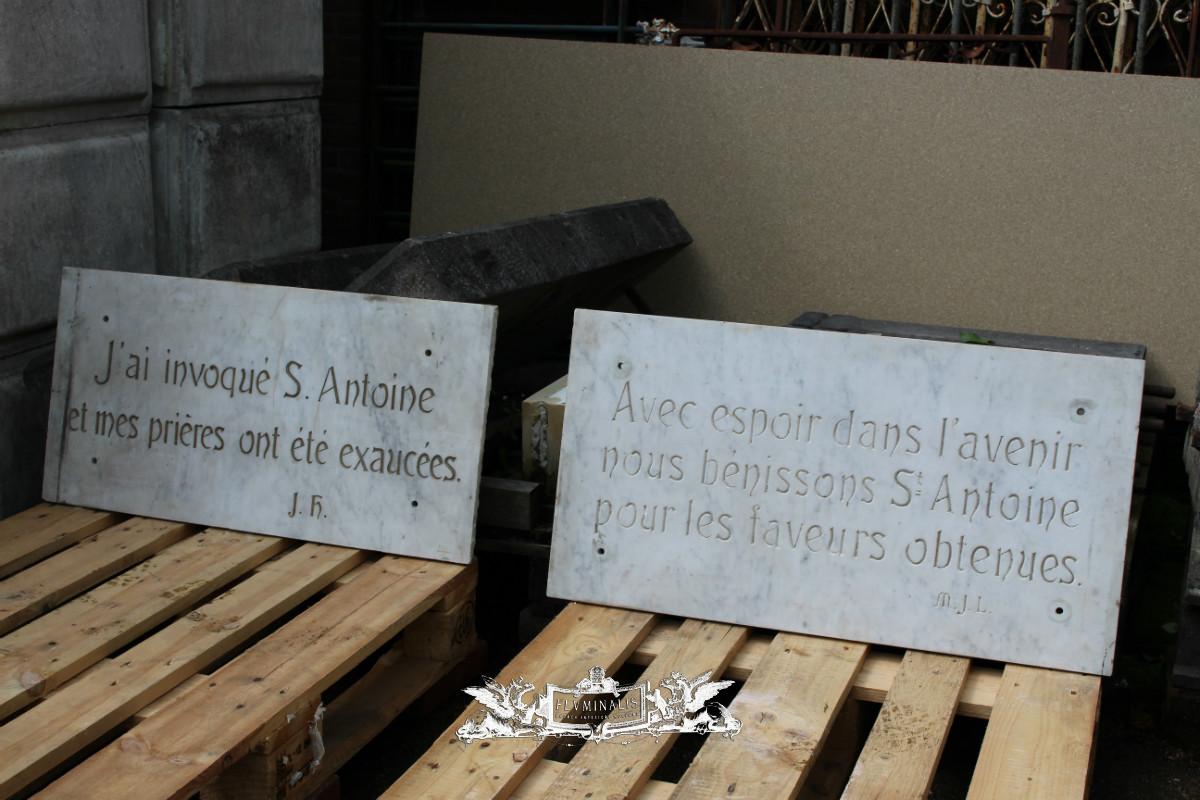 J'ai invoqué S. Antoine
et mes prières ont été exaucées.
J. H.
Avec espoir dans l'avenir
nous bénissons St Antoine
pour les faveurs obtenues.
M.J.L.
FLVMINALIS